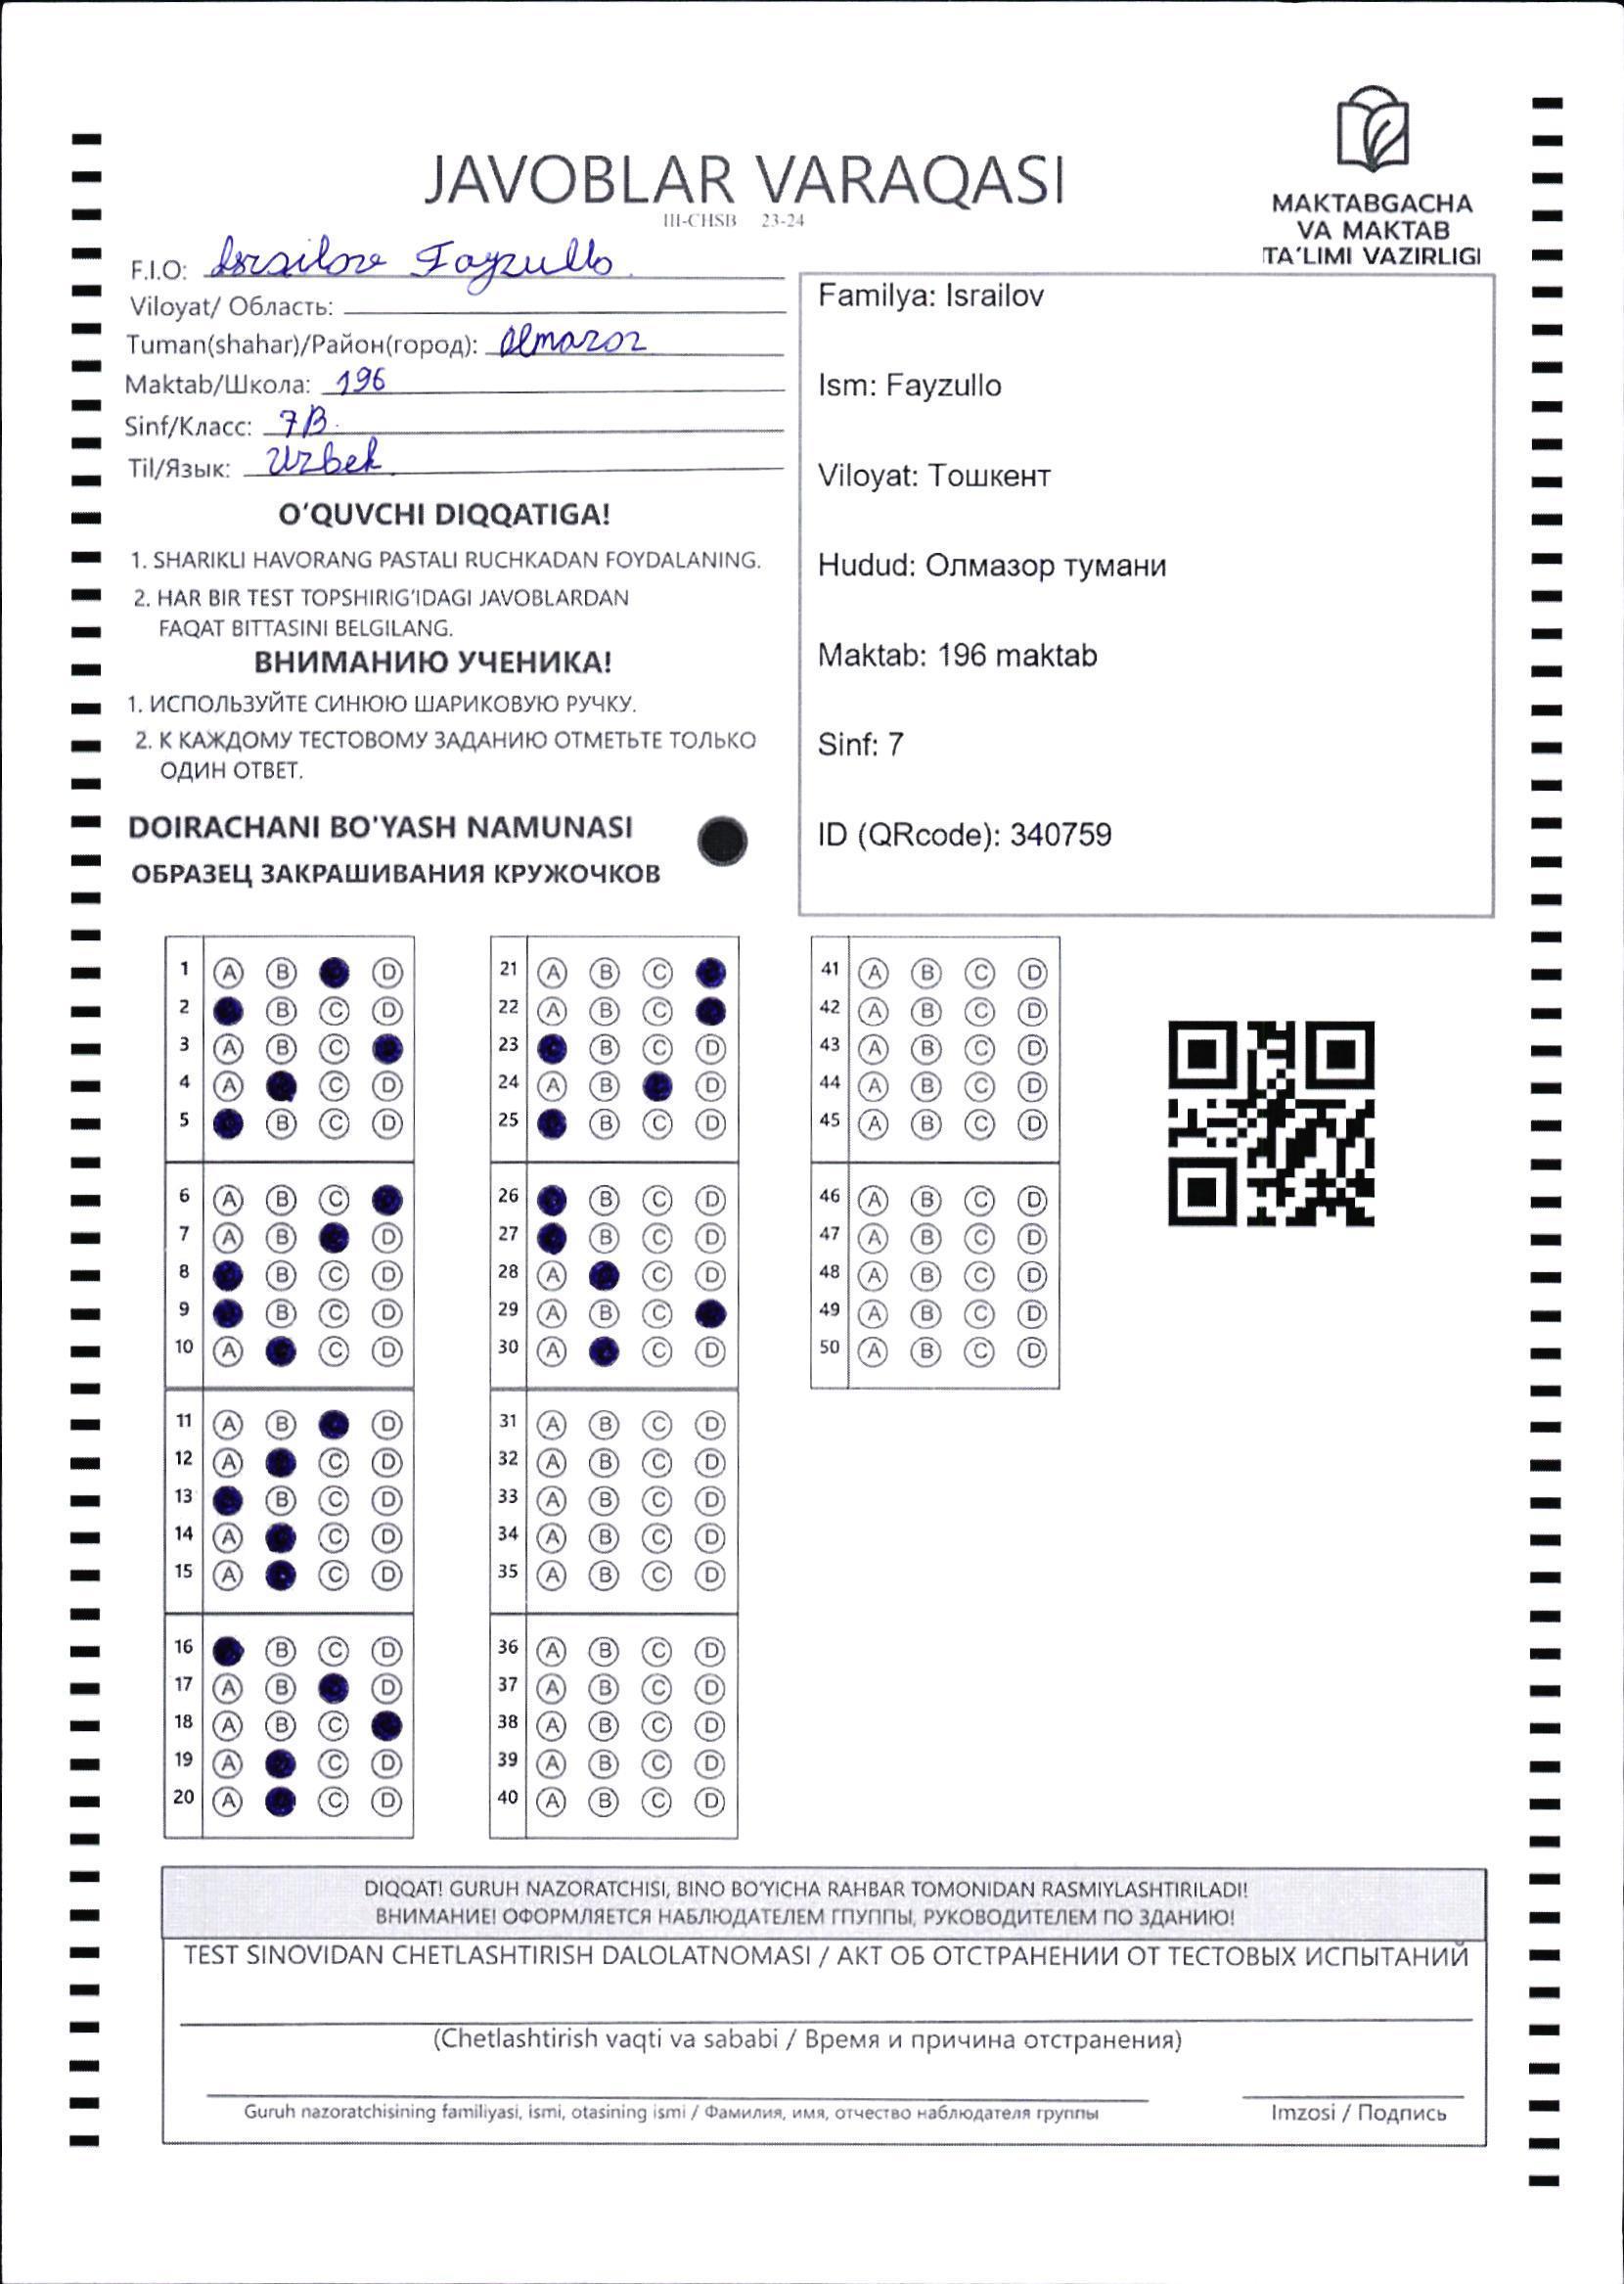 JAVOBLAR VARAQASI
III-CHSB 23-24
MAKTABGACHA
VA MAKTAB
TA'LIMI VAZIRLIGI
F.I.O: Israilov Fayzullo
Viloyat/ Область:
Tuman(shahar)/Район(город): Olmazor
Maktab/Школа: 196
Sinf/Класс: 7B
Til/Язык: Uzbek
O'QUVCHI DIQQATIGA!
1. SHARIKLI HAVORANG PASTALI RUCHKADAN FOYDALANING.
2. HAR BIR TEST TOPSHIRIG'IDAGI JAVOBLARDAN
FAQAT BITTASINI BELGILANG.
ВНИМАНИЮ УЧЕНИКА!
1. ИСПОЛЬЗУЙТЕ СИНЮЮ ШАРИКОВУЮ РУЧКУ.
2. К КАЖДОМУ ТЕСТОВОМУ ЗАДАНИЮ ОТМЕТЬТЕ ТОЛЬКО
ОДИН ОТВЕТ.
DOIRACHANI BO'YASH NAMUNASI
ОБРАЗЕЦ ЗАКРАШИВАНИЯ КРУЖОЧКОВ
Familya: Israilov
Ism: Fayzullo
Viloyat: Тошкент
Hudud: Олмазор тумани
Maktab: 196 maktab
Sinf: 7
ID (QRcode): 340759
1 A B D
2 B C D
3 A B C
4 A C D
5 B C D
6 A B C
7 A B D
8 B C D
9 B C D
10 A C D
11 A B D
12 A C D
13 B C D
14 A C D
15 A C D
16 B C D
17 A B D
18 A B C
19 A C D
20 A C D
21 A B C
22 A B C
23 B C D
24 A B D
25 B C D
26 B C D
27 B C D
28 A C D
29 A B C
30 A C D
31 A B C D
32 A B C D
33 A B C D
34 A B C D
35 A B C D
36 A B C D
37 A B C D
38 A B C D
39 A B C D
40 A B C D
41 A B C D
42 A B C D
43 A B C D
44 A B C D
45 A B C D
46 A B C D
47 A B C D
48 A B C D
49 A B C D
50 A B C D
DIQQAT! GURUH NAZORATCHISI, BINO BO'YICHA RAHBAR TOMONIDAN RASMIYLASHTIRILADI!
ВНИМАНИЕ! ОФОРМЛЯЕТСЯ НАБЛЮДАТЕЛЕМ ГПУППЫ, РУКОВОДИТЕЛЕМ ПО ЗДАНИЮ!
TEST SINOVIDAN CHETLASHTIRISH DALOLATNOMASI / АКТ ОБ ОТСТРАНЕНИИ ОТ ТЕСТОВЫХ ИСПЫТАНИЙ
(Chetlashtirish vaqti va sababi / Время и причина отстранения)
Guruh nazoratchisining familiyasi, ismi, otasining ismi / Фамилия, имя, отчество наблюдателя группы
Imzosi / Подпись